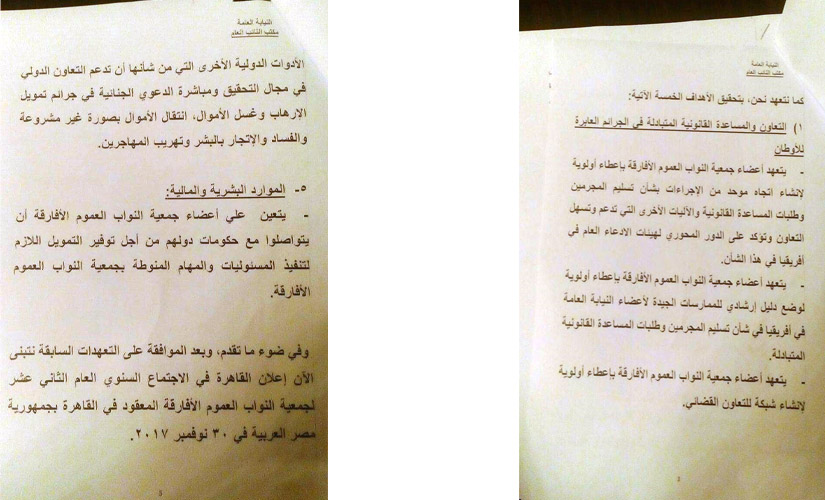 النيابة العامة
مكتب النائب العام
كما نتعهد نحن، بتحقيق الأهداف الخمسة الآتية:
١) التعاون والمساعدة القانونية المتبادلة في الجرائم العابرة
للأوطان
- يتعهد أعضاء جمعية النواب العموم الأفارقة بإعطاء أولوية
لإنشاء اتجاه موحد من الإجراءات بشأن تسليم المجرمين
وطلبات المساعدة القانونية والآليات الأخرى التي تدعم وتسهل
التعاون وتؤكد على الدور المحوري لهيئات الادعاء العام في
أفريقيا في هذا الشأن.
- يتعهد أعضاء جمعية النواب العموم الأفارقة بإعطاء أولوية
لوضع دليل إرشادي للممارسات الجيدة لأعضاء النيابة العامة
في أفريقيا في شأن تسليم المجرمين وطلبات المساعدة القانونية
المتبادلة.
- يتعهد أعضاء جمعية النواب العموم الأفارقة بإعطاء أولوية
لإنشاء شبكة للتعاون القضائي.
النيابة العامة
مكتب النائب العام
الأدوات الدولية الأخرى التي من شأنها أن تدعم التعاون الدولي
في مجال التحقيق ومباشرة الدعوي الجنائية في جرائم تمويل
الإرهاب وغسل الأموال، انتقال الأموال بصورة غير مشروعة
والفساد والإتجار بالبشر وتهريب المهاجرين.
٥- الموارد البشرية والمالية:
- يتعين علي أعضاء جمعية النواب العموم الأفارقة أن
يتواصلوا مع حكومات دولهم من أجل توفير التمويل اللازم
لتنفيذ المسئوليات والمهام المنوطة بجمعية النواب العموم
الأفارقة.
وفي ضوء ما تقدم، وبعد الموافقة على التعهدات السابقة نتبنى
الآن إعلان القاهرة في الاجتماع السنوي العام الثاني عشر
لجمعية النواب العموم الأفارقة المعقود في القاهرة بجمهورية
مصر العربية في ٣٠ نوفمبر ٢٠١٧.
5